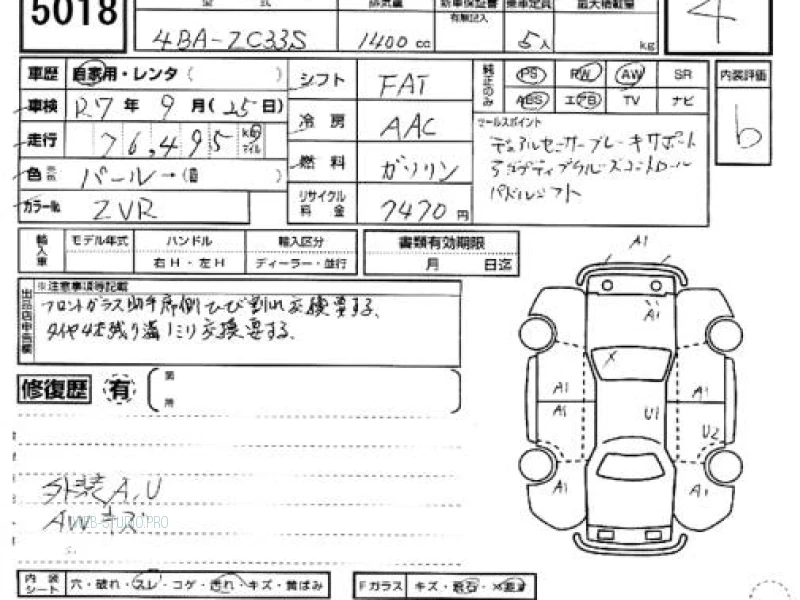 5018 型 式 排気量 新車保証書 有無記入 乗車定員 最大積載量
4BA-ZC33S 1400 cc 5人 kg 4
車歴 自家用・レンタ ( )
シフト FAT
純正のみ PS PW AW SR
ABS エアB TV ナビ
内装評価 b
車検 R7年 9月 (25日)
冷房 AAC
セールスポイント
デュアルセンサーブレーキサポート
アダプティブクルーズコントロール
パドルシフト
走行 76,495 km マイル
燃料 ガソリン
色 パール → ( )
カラー№ ZVR
リサイクル料金 7470円
輸入車 モデル年式 ハンドル 輸入区分
右H・左H ディーラー・並行
書類有効期限
月 日迄
出品店申告欄 ※注意事項等記載
フロントガラス助手席側ひび割れ交換要する、
タイヤ4本残り溝1ミリ交換要する、
修復歴 有
外装A,U
AWキズ
WEB-STUDIO.PRO
内装シート 穴・破れ・スレ・コゲ・汚れ・キズ・黄ばみ
Fガラス キズ・飛石・
A1
A1
X
A1 A1
A1 U1
U2
A1 A1